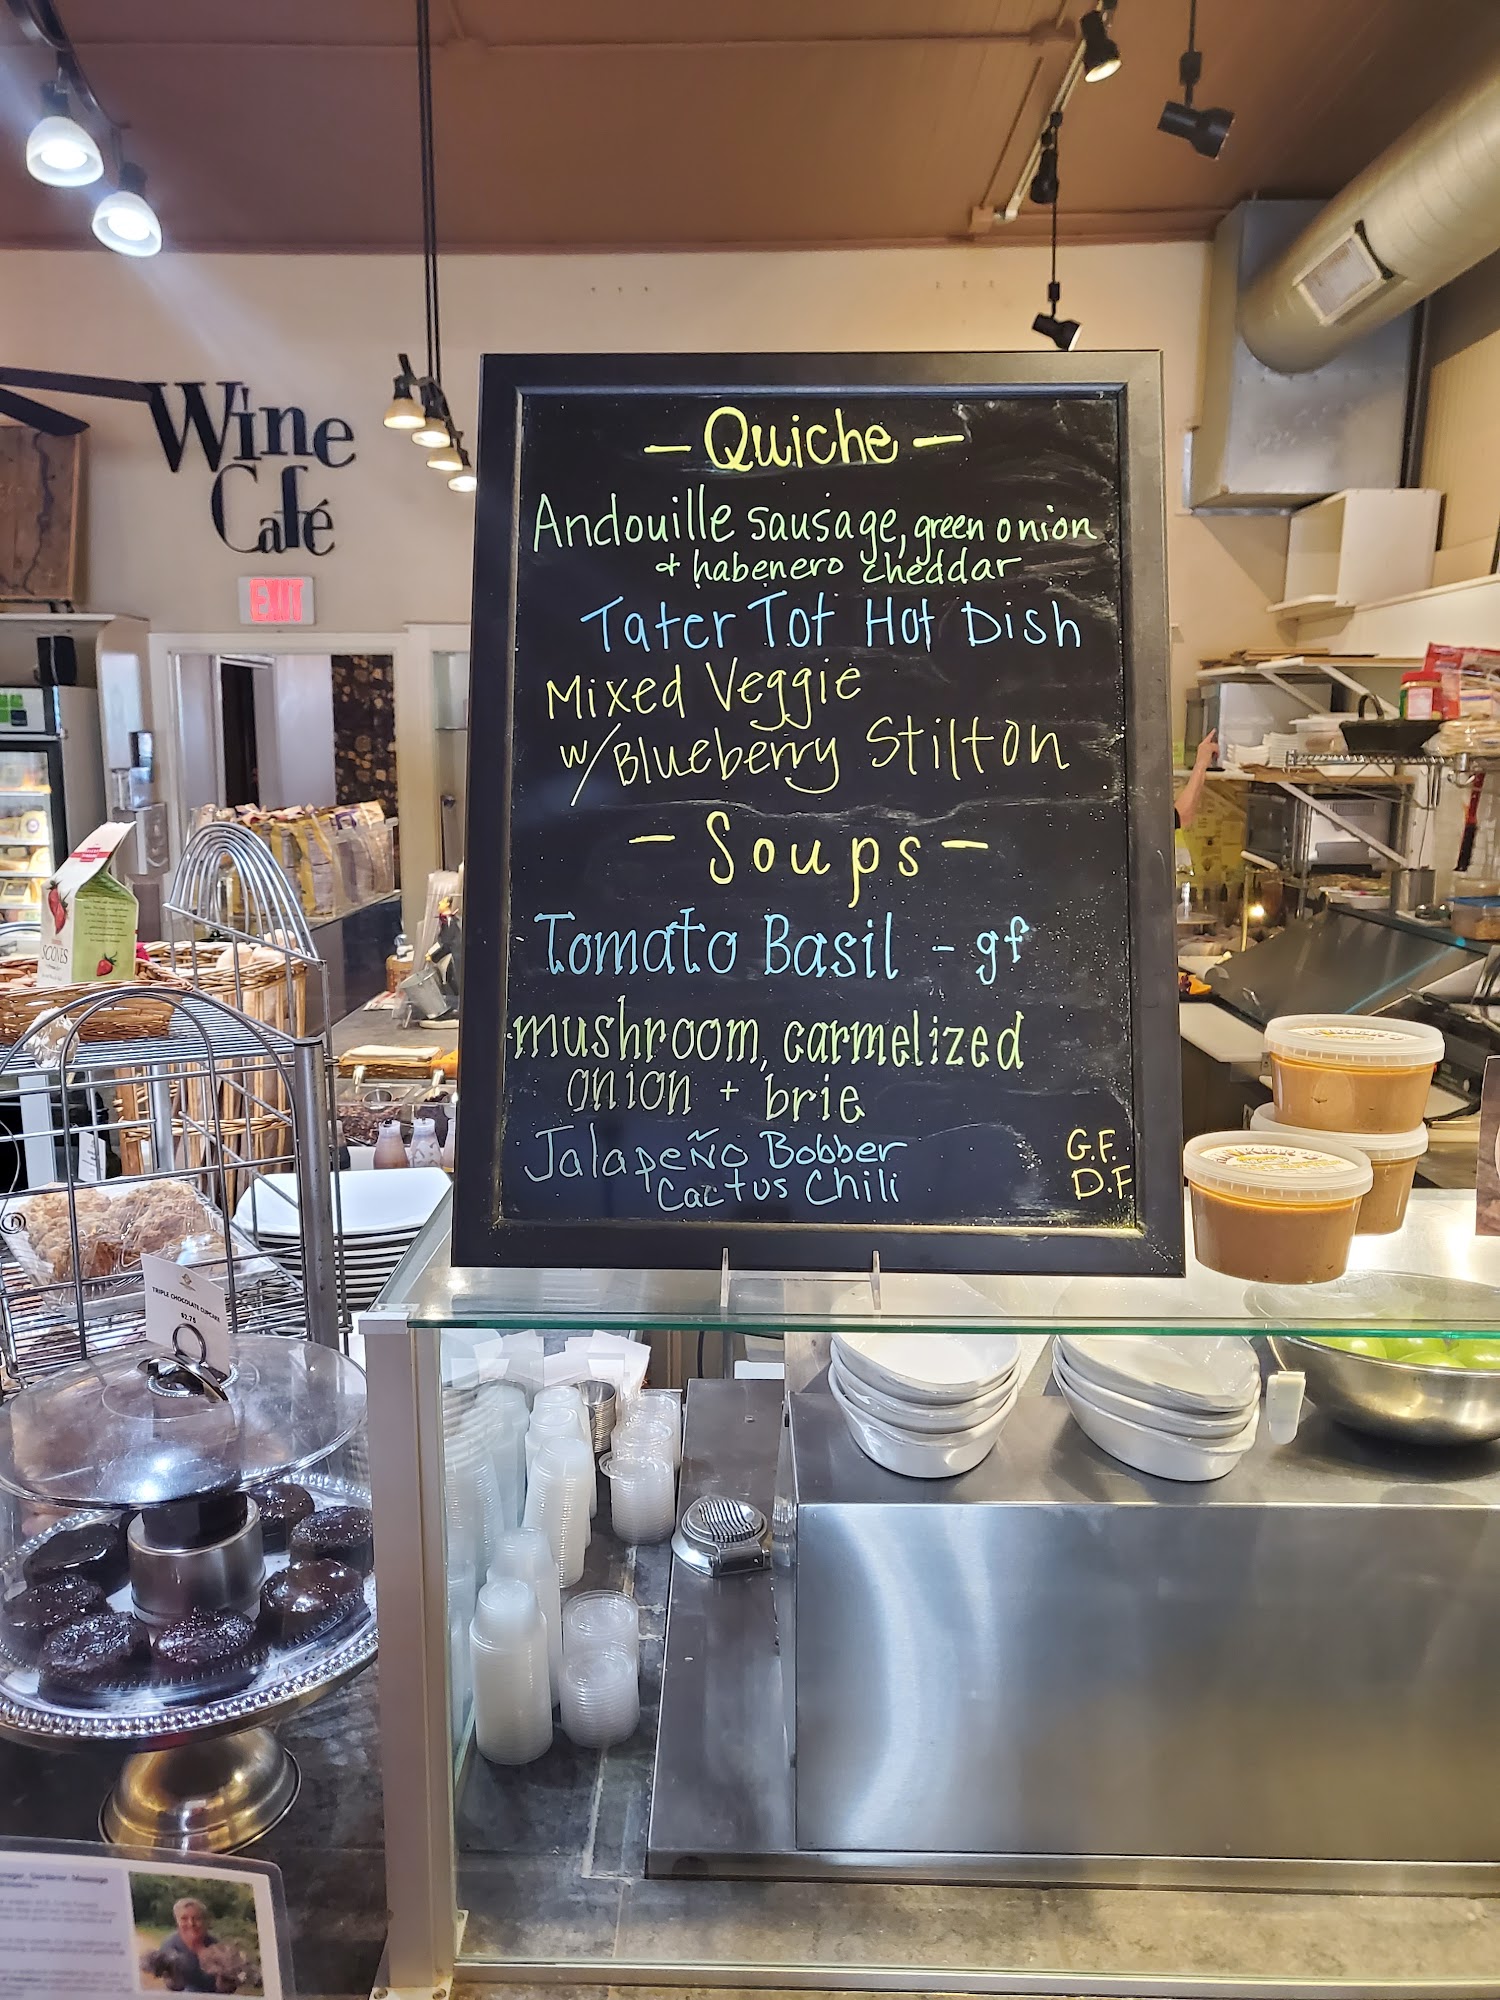 Wine
Café
EXIT
- Quiche -
Andouille sausage, green onion
+ habenero cheddar
Tater Tot Hot Dish
Mixed Veggie
w/ Blueberry Stilton
- Soups -
Tomato Basil - gf
mushroom, carmelized
onion + brie
Jalapeño Bobber
Cactus Chili
G.F.
D.F.
SCONES
TRIPLE CHOCOLATE CUPCAKE
$2.75